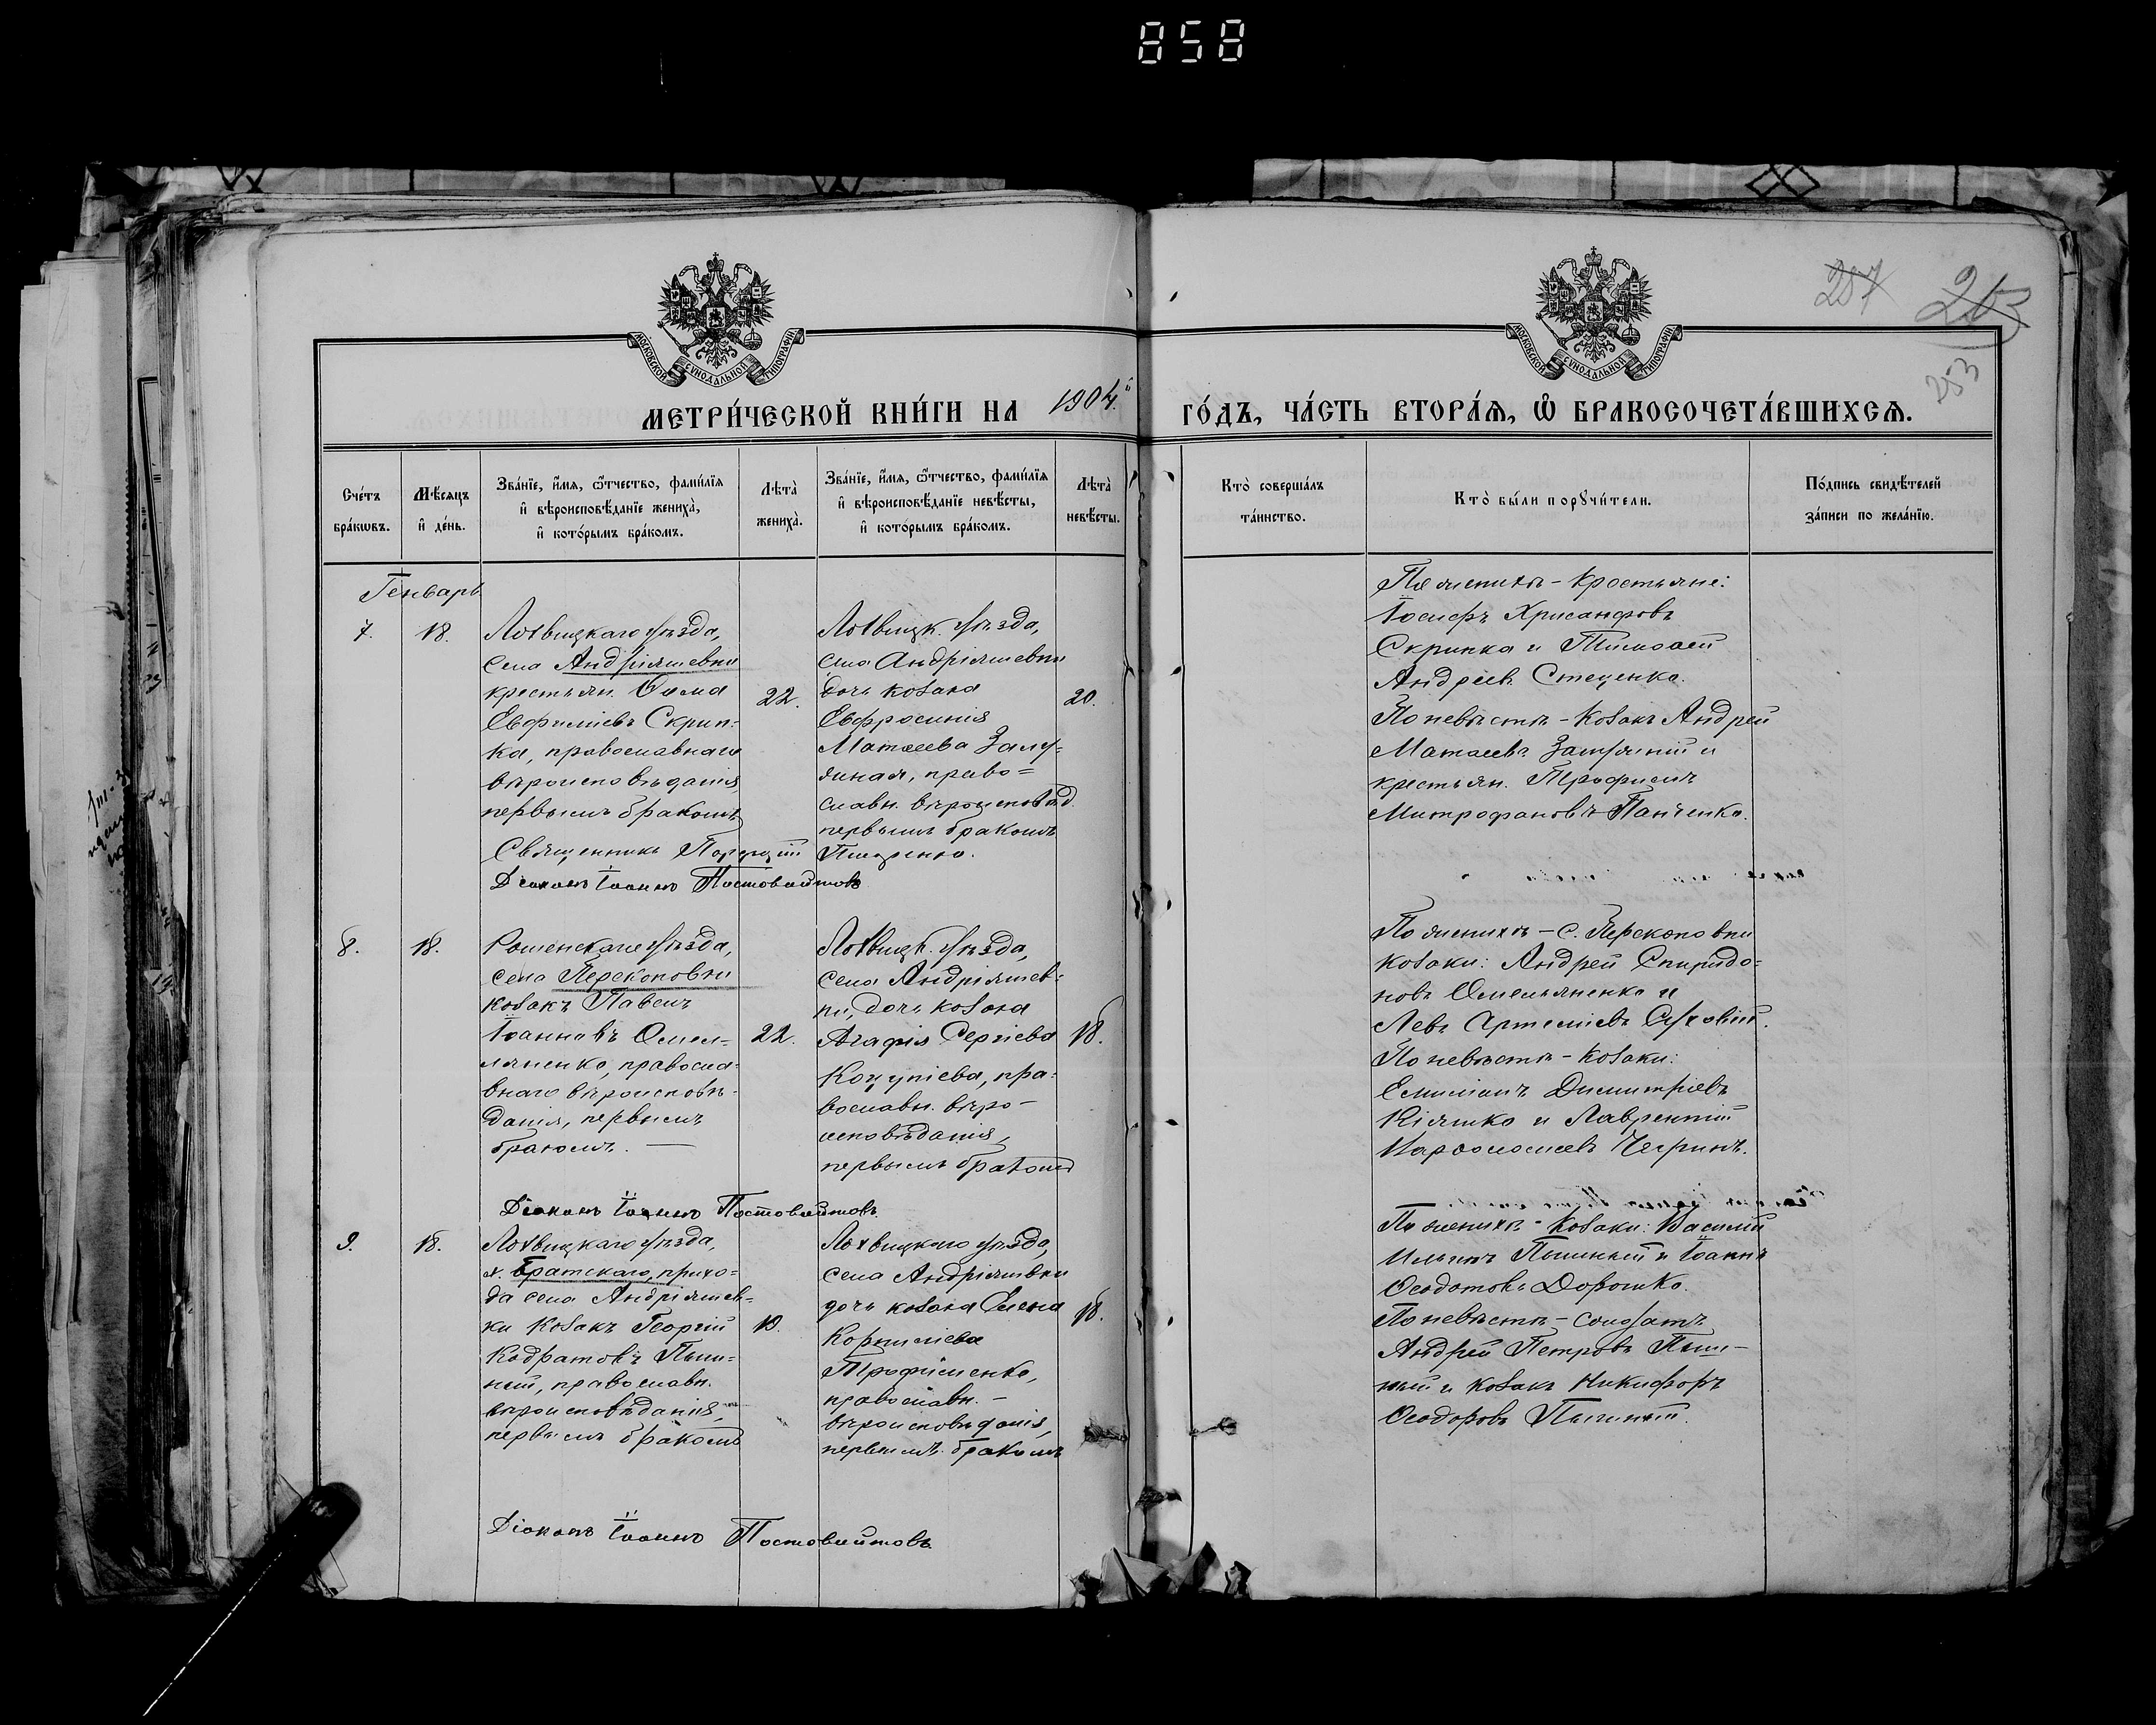 858
МОСКОВСКОЙ СУНОДАЛЬНОЙ ТИПОГРАФІИ
МОСКОВСКОЙ СУНОДАЛЬНОЙ ТИПОГРАФІИ
257
253
МЕТРИ́ЧЕСКОЙ КНИ́ГИ НА 1904.й ГО́ДЪ, ЧА́СТЬ ВТОРА́Ѧ, Ѽ БРАКОСОЧЕТА́ВШИХСѦ.
Сче́тъ бра́кѡвъ.
Мѣ́сяцъ и҆ де́нь.
Зва́нїе, и҆́мя, ѻ҆́тчество, фами́лїя и҆ вѣроисповѣ́данїе жениха̀, и҆ кото́рымъ бра́комъ.
Лѣта̀ жениха̀.
Зва́нїе, и҆́мя, ѻ҆́тчество, фами́лїя и҆ вѣроисповѣ́данїе невѣ́сты, и҆ кото́рымъ бра́комъ.
Лѣта̀ невѣ́сты.
Кто̀ соверша́лъ та́инство.
Кто̀ бы́ли порꙋчи́тели.
По́дпись свидѣ́телей за́писи по жела́нїю.
Генварь
7.
18.
Лохвицкаго уѣзда,
села Андріяшевки
крестьян. Ѳома
Евфиміевъ Скрип-
ка, православнаго
вѣроисповѣданія
первымъ бракомъ
22.
Лохвицк. уѣзда,
села Андріяшевки
дочь козака
Евфросинія
Матѳеева
православн. вѣроисповѣд.
первымъ бракомъ
20.
Священникъ
Діаконъ Іоаннъ Постовойтовъ
По женихѣ - крестьяне:
Іосифъ Хрисанфовъ
Скрипка и Тимоѳей
Андреев. Стеценко.
По невѣстѣ - козакъ Андрей
Матѳеевъ и
крестьян. Трофимъ
Митрофановъ Панченко.
8.
18.
Роменскаго уѣзда,
села Перекоповки
козакъ Павелъ
Іоанновъ Омел-
ляненко, правосла-
внаго вѣроисповѣ-
данія, первымъ
бракомъ. —
22.
Лохвицк. уѣзда,
села Андріяшев-
ки, дочь козака
Агафія Сергіева
пра-
вославн. вѣро-
исповѣданія,
первымъ бракомъ
18.
Діаконъ Іоаннъ Постовойтовъ
По женихѣ - с. Перекоповки
козаки: Андрей Спиридо-
новъ Омельяненко и
Левъ Артеміевъ
По невѣстѣ - козаки:
Емиліанъ Димитріевъ
Кіяшко и Лаврентій
Варѳоломеевъ Чегринъ.
9.
18.
Лохвицкаго уѣзда,
х. Братскаго, прихо-
да села Андріяшев-
ки козакъ Георгій
Кодратовъ Пыш-
ный, православн.
вѣроисповѣданія,
первымъ бракомъ
19.
Лохвицкаго уѣзда,
села Андріяшевки
дочь козака Елена
Корниліева
Трофименко,
православн. -
вѣроисповѣданія,
первымъ бракомъ
18.
Діаконъ Іоаннъ Постовойтовъ
По женихѣ - козаки: Василій
Ильинъ Пышный и Іоаннъ
Ѳеодотовъ Дорошко.
По невѣстѣ - солдатъ
Андрей Петровъ Пыш-
ный и козакъ Никифоръ
Ѳеодоровъ Пышный.